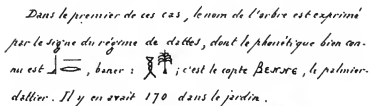 Dans le premier de ces cas, le nom de l'arbre est exprimé
par le signe du régime de dattes, dont le phonétique bien con-
nu est , baner : ; c'est le copte ⲂⲈⲚⲚⲈ, le palmier-
dattier. Il y en avait 170 dans le jardin.